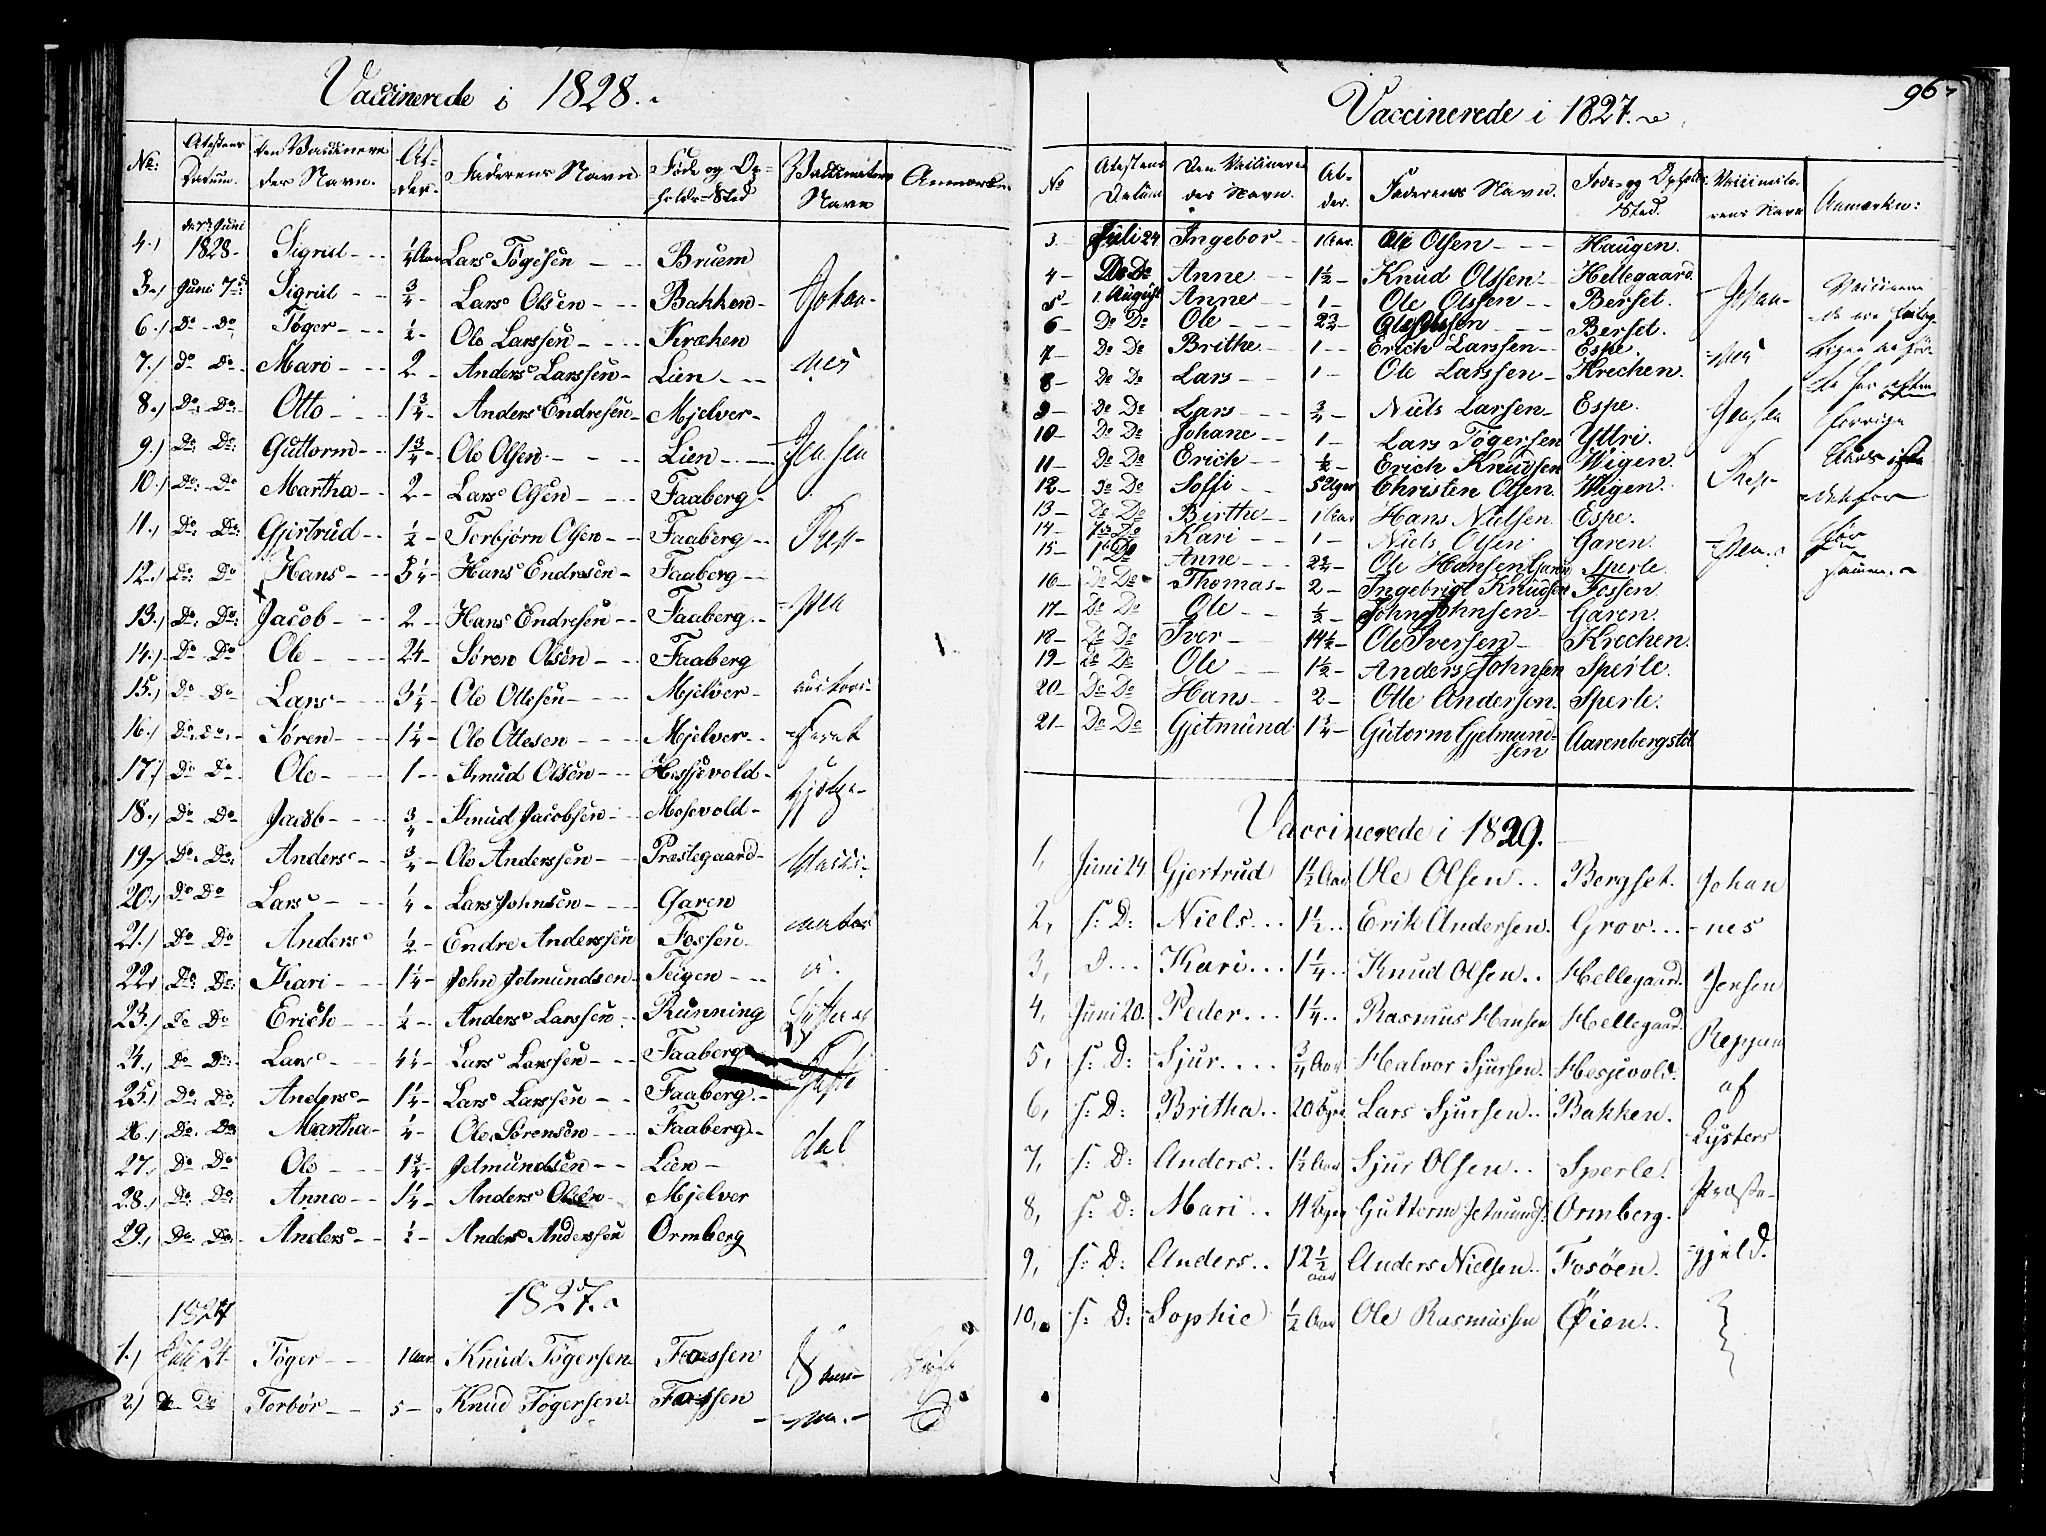 Vaccinerede i 1828.
No:
Atestens Datum.
den Vaccinerede der Navn.
Al-der.
Faderens Navn
Føde og Op-holds-Sted
Vaccinateu Navn
Anmærkn.
4.) den 7 Juni 1828. Sigrid Lars Tøgesen Bruem
5.) Juni 7d: Sigrid 3/4 Lars Olsen Bakken
6.) Do Do Tøger 1/2 Ole Larssen Kræken
7.) Do Do Mari 2 Anders Larssen Lien
8.) Do Do Otto 1 3/4 Anders Endresen Mjelver
9.) Do Do Guttorm 1 3/4 Ole Olsen Lien
10.) Do Do Martha 2 Lars Olsen Faaberg
11.) Do Do Gjertrud 1/2 Torbjørn Olsen Faaberg
12.) Do Do Hans 3 1/4 Hans Endresen Faaberg
13.) Do Do Jacob 2 Hans Endresen Faaberg
14.) Do Do Ole 24 Søren Olsen Faaberg
15.) Do Do Lars 3 1/2 Ole Ottesen Mjelver
16.) Do Do Søren 1 1/4 Ole Ottesen Mjelver
17.) Do Do Ole 1 Knud Olsen Hesjevold
18.) Do Do Jacob 3/4 Knud Jacobsen Mosevold
19.) Do Do Anders 3/4 Ole Anderssen Præstegaard
20.) Do Do Lars 1/4 Lars Johnsen Garen
21.) Do Do Anders 1/2 Endre Anderssen Fossen
22.) Do Do Kari 1 1/4 John Jetmundsen Teigen
23.) Do Do Erich 1/2 Anders Larssen Rønning
24.) Do Do Lars Lars Larssen Faaberg
25.) Do Do Anders 1 1/4 Lars Larssen Faaberg
26.) Do Do Martha 1/4 Ole Sørensen Faaberg
27.) Do Do Ole 1 3/4 Jetmundsen Lien
28.) Do Do Anne 1 1/4 Anders Olsen Mjelver
29.) Do Do Anders 1/2 Anders Anderssen Ormberg
Johan-
nes
Jensen
Rep-
pen
1827.
1827
1.) Juli 24. Tøger 1 Aar Knud Tøgersen Fossen
2.) Do Do Torbør 5 Knud Tøgersen Fossen
96
Vaccinerede i 1827.
No
Atestens Datum
Den Vaccinerede des Navn.
Al-der.
Faderens Navn.
Føde- og Opholds Sted.
Vaccinato-rens Navn
Anmærkn:
3 Juli 24 Ingebor 1 Aar Ole Olsen Haugen.
4 Do Do Anne 1 1/2 Knud Olssen Hellegaard.
5 1 August Anne 1 Ole Olssen Berset.
6 Do Do Ole 2 3/4 Ole Olssen Berset.
7 Do Do Brithe 1 Erich Larssen Espe.
8 Do Do Lars 1 Ole Larssen Krechen.
9 Do Do Lars 3/4 Niels Larsen Espe.
10 Do Do Johane 1 Lars Tøgersen Yttri.
11 Do Do Erich 1/2 Erich Knudsen Wigen.
12 Do Do Soffi 5 Uger Christen Olsen. Wigen.
13 Do Do Birthe 1 Aar Hans Nielsen. Espe.
14 Do Kari 1 Niels Olsen Garen.
15 Do Anne Ole Hansen Garen Sperle.
16 Do Do Thomas 2 Ingebrigt Knudsen Fossen.
17 Do Do Ole 1/2 John Johnsen Garen.
18 Do Do Iver 14 1/2 Ole Iversen Krechen.
19 Do Do Ole 1 1/2 Anders Johnsen Sperle.
20 Do Do Hans 2 Olle Andersen. Sperle.
21 Do Do Gjetmund 1 3/4 Gutorm Gjetmund-sen Aarenbergstøl
Johan-
nes
Jensen
Rep-
pen.
Vaccinerede i 1829.
1, Juni 14 Gjertrud 1 1/2 Aar Ole Olsen.. Bergset. Johan
2, s: D: Niels... 1 1/2.. Erik Andersen. Grov... -nes
3, D... Kari... 1 1/4.. Knud Olsen.. Hellegaard. Jensen
4, Juni 20. Peder... 1 1/4.. Rasmus Hansen Hellegaard. Reppen
5, s: D: Sjur.... 3/4 Aar Halvor Sjursen. Hesjevold. af
6, s: D: Britha.. 20 Uger Lars Sjursen.. Bakken. Lysters
7, s: D: Anders.. 1 1/2 Aar Sjur Olsen.. Sperle. Præste-
8, s: D: Mari.. 11 Uger Guttorm Jetmunds: Ormberg.
9, s: D: Anders.. 12 1/2 aar Anders Nielsen.. Fosøen. -gjeld.
10, s: D: Sophie 1/2 Aar Ole Rasmussen Øien..